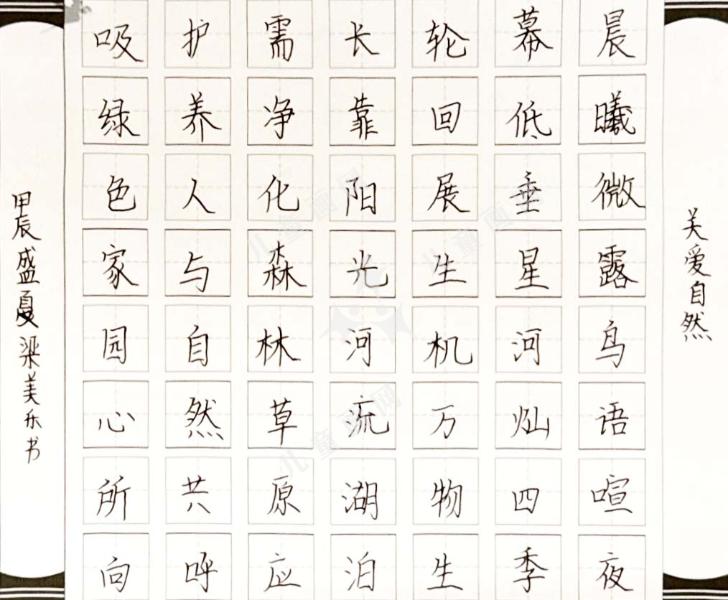 关爱自然
晨曦微露鸟语喧夜
幕低垂星河灿四季
轮回展生机万物生
长靠阳光河流湖泊
需净化森林草原应
护养人与自然共呼
吸绿色家园心所向
甲辰盛夏梁美乐书
儿童画网
儿童画网
儿童画网